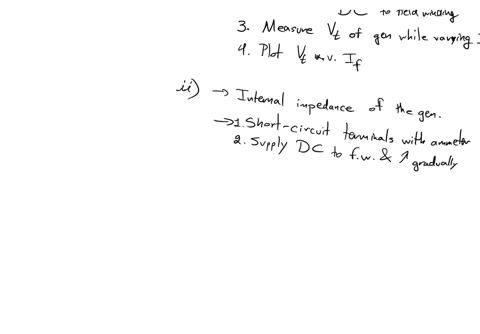 DC to field winding
3. Measure Vt of gen while varying I
4. Plot Vt v. If
ii) → Internal impedance of the gen.
→ 1. Short-circuit terminals with ammeter
2. Supply DC to f.w. & ↗ gradually